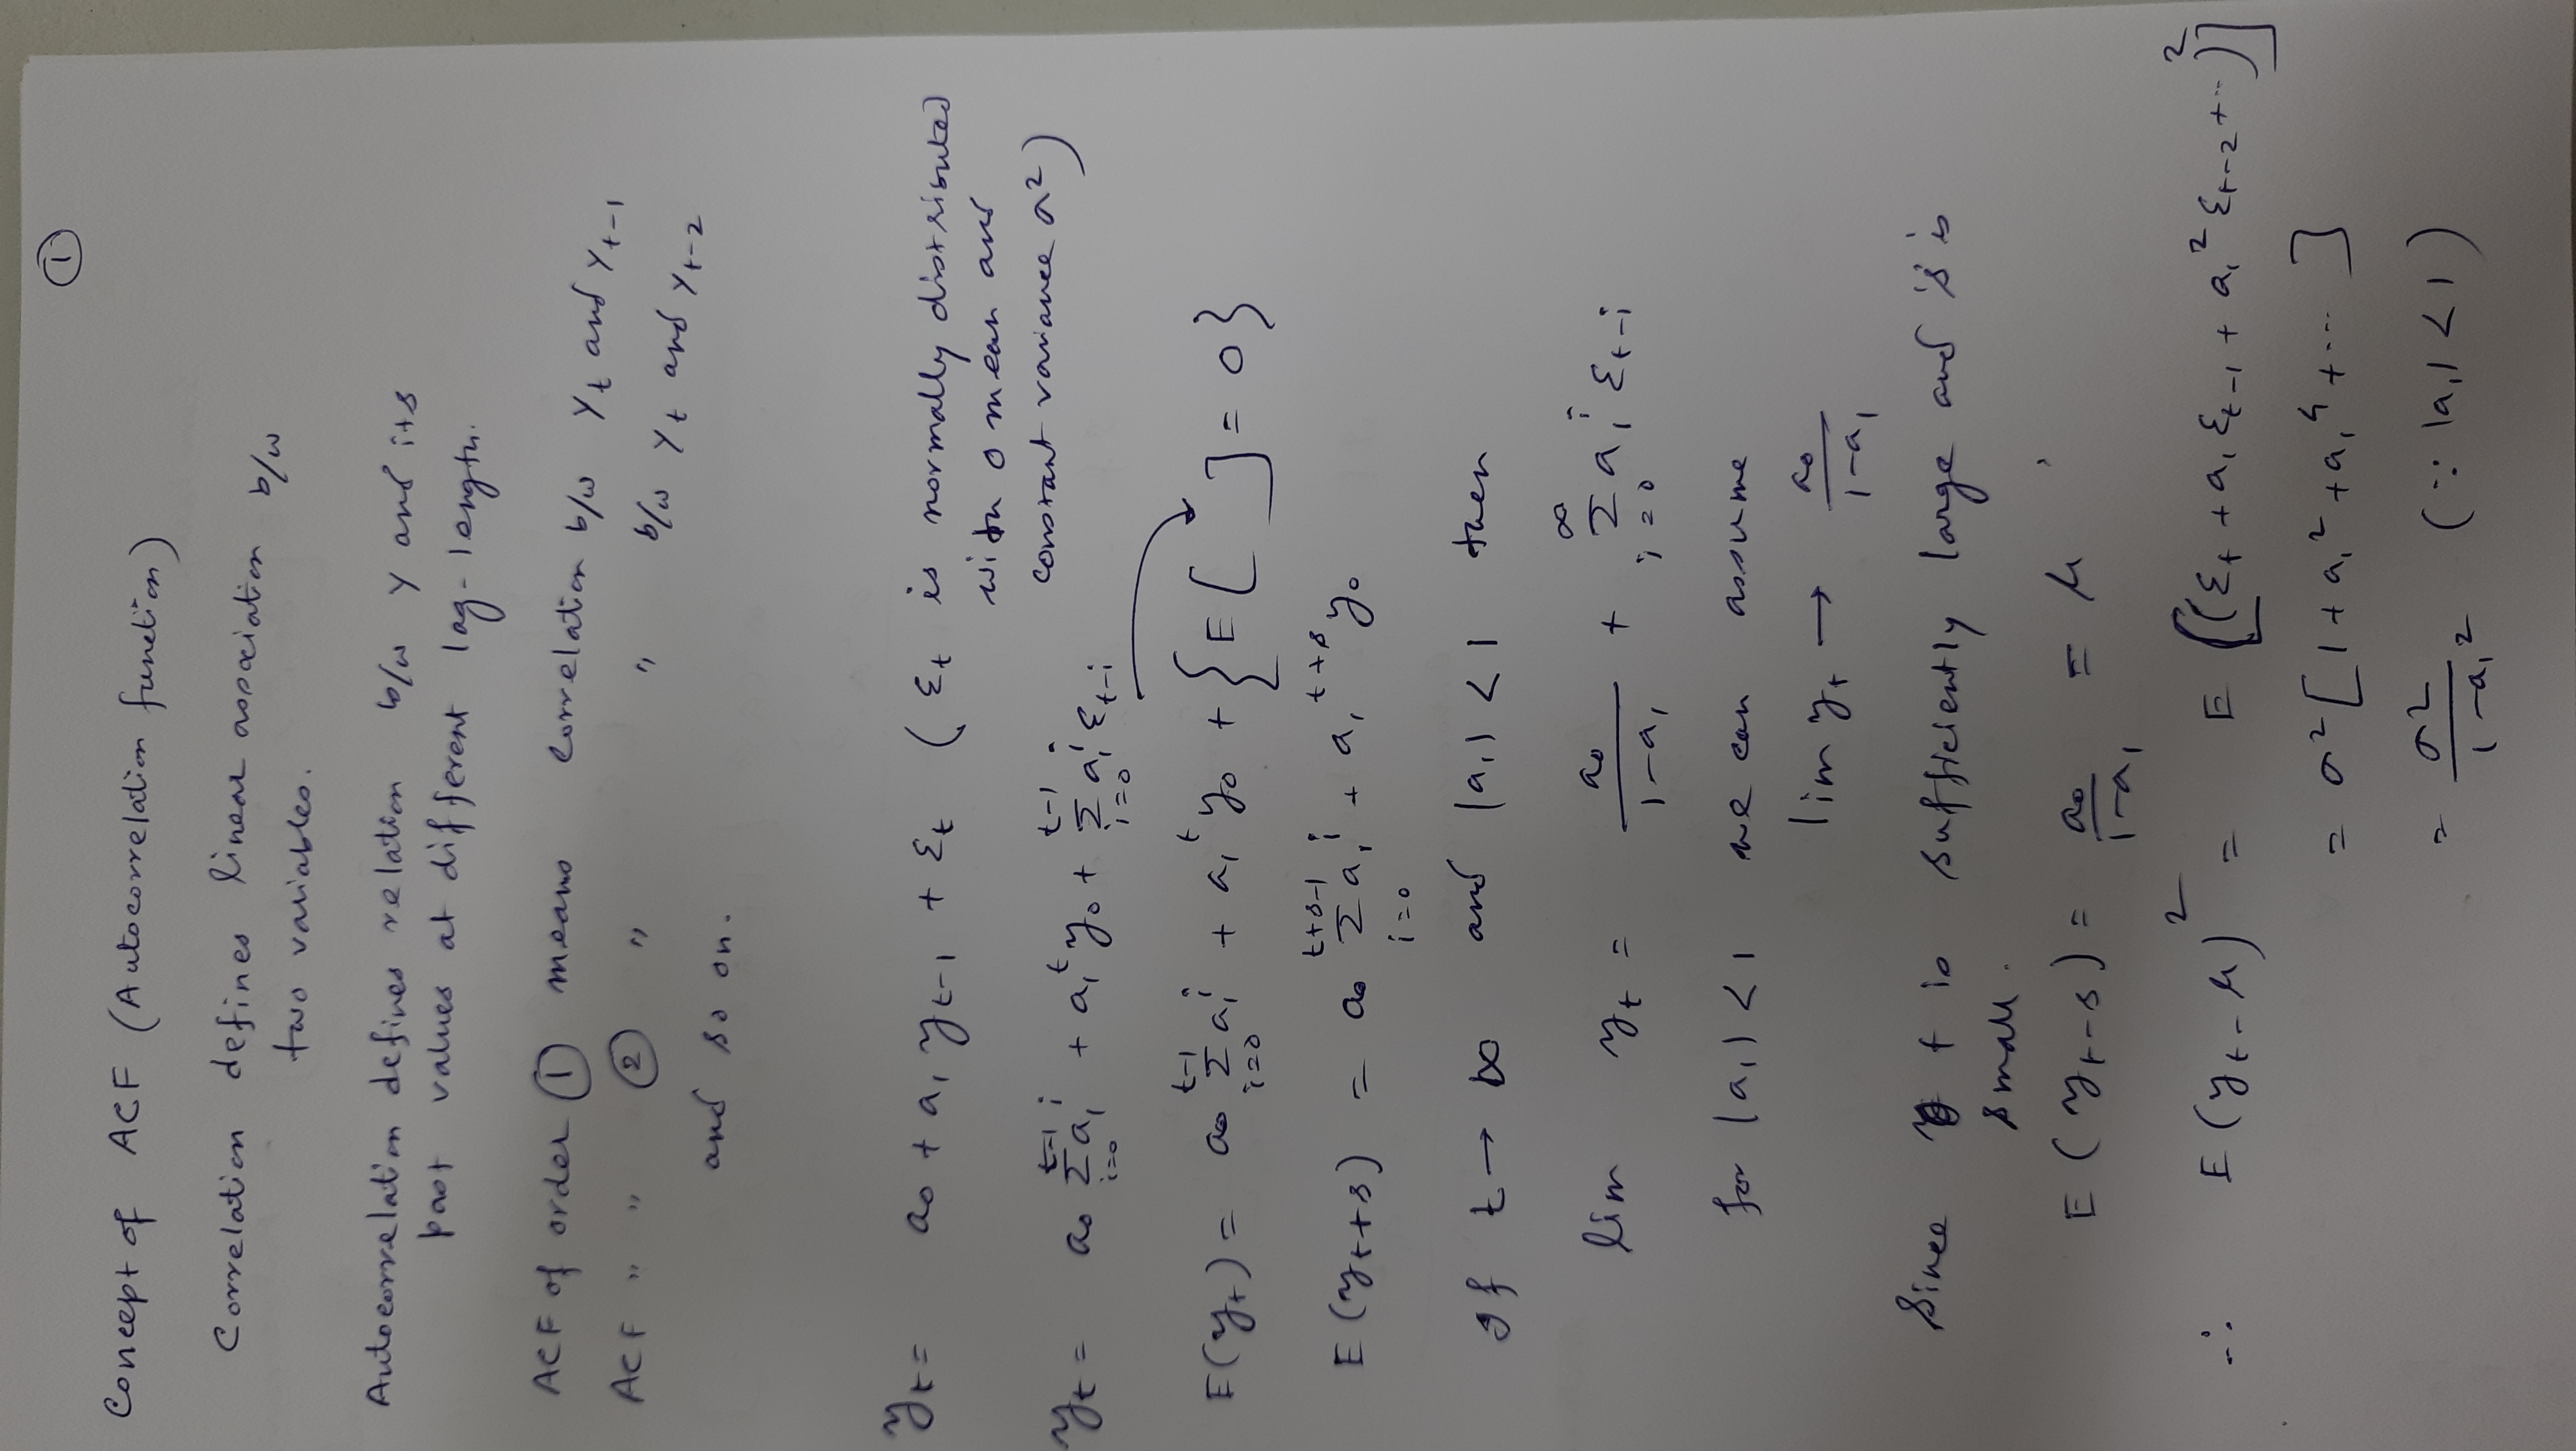 ①
Concept of ACF (Autocorrelation function)
Correlation defines linear association b/w
two variables.
Autocorrelation defines relation b/w y and its
past values at different lag-length.
ACF of order ① means correlation b/w Yt and Yt-1
ACF " " ② " " b/w Yt and Yt-2
and so on.
yt = a₀ + a₁ yt-1 + εt ( εt is normally distributed
with 0 mean and
constant variance σ²)
yt = a₀ Σ_{i=0}^{t-1} a₁^i + a₁^t y₀ + Σ_{i=0}^{t-1} a₁^i εt-i
E(yt) = a₀ Σ_{i=0}^{t-1} a₁^i + a₁^t y₀ + {E [ ] = 0}
E(yt+s) = a₀ Σ_{i=0}^{t+s-1} a₁^i + a₁^{t+s} y₀
If t → ∞ and |a₁| < 1 then
lim yt = a₀/(1-a₁) + Σ_{i=0}^{∞} a₁^i εt-i
for |a₁| < 1 we can assume
lim yt → a₀/(1-a₁)
Since t is sufficiently large and 's' is
small.
E(yt-s) = a₀/(1-a₁) = μ
∴ E(yt-μ)² = E [(εt + a₁ εt-1 + a₁² εt-2 + ...)²]
= σ² [1 + a₁² + a₁⁴ + ... ]
= σ²/(1-a₁²) (∵ |a₁| < 1)